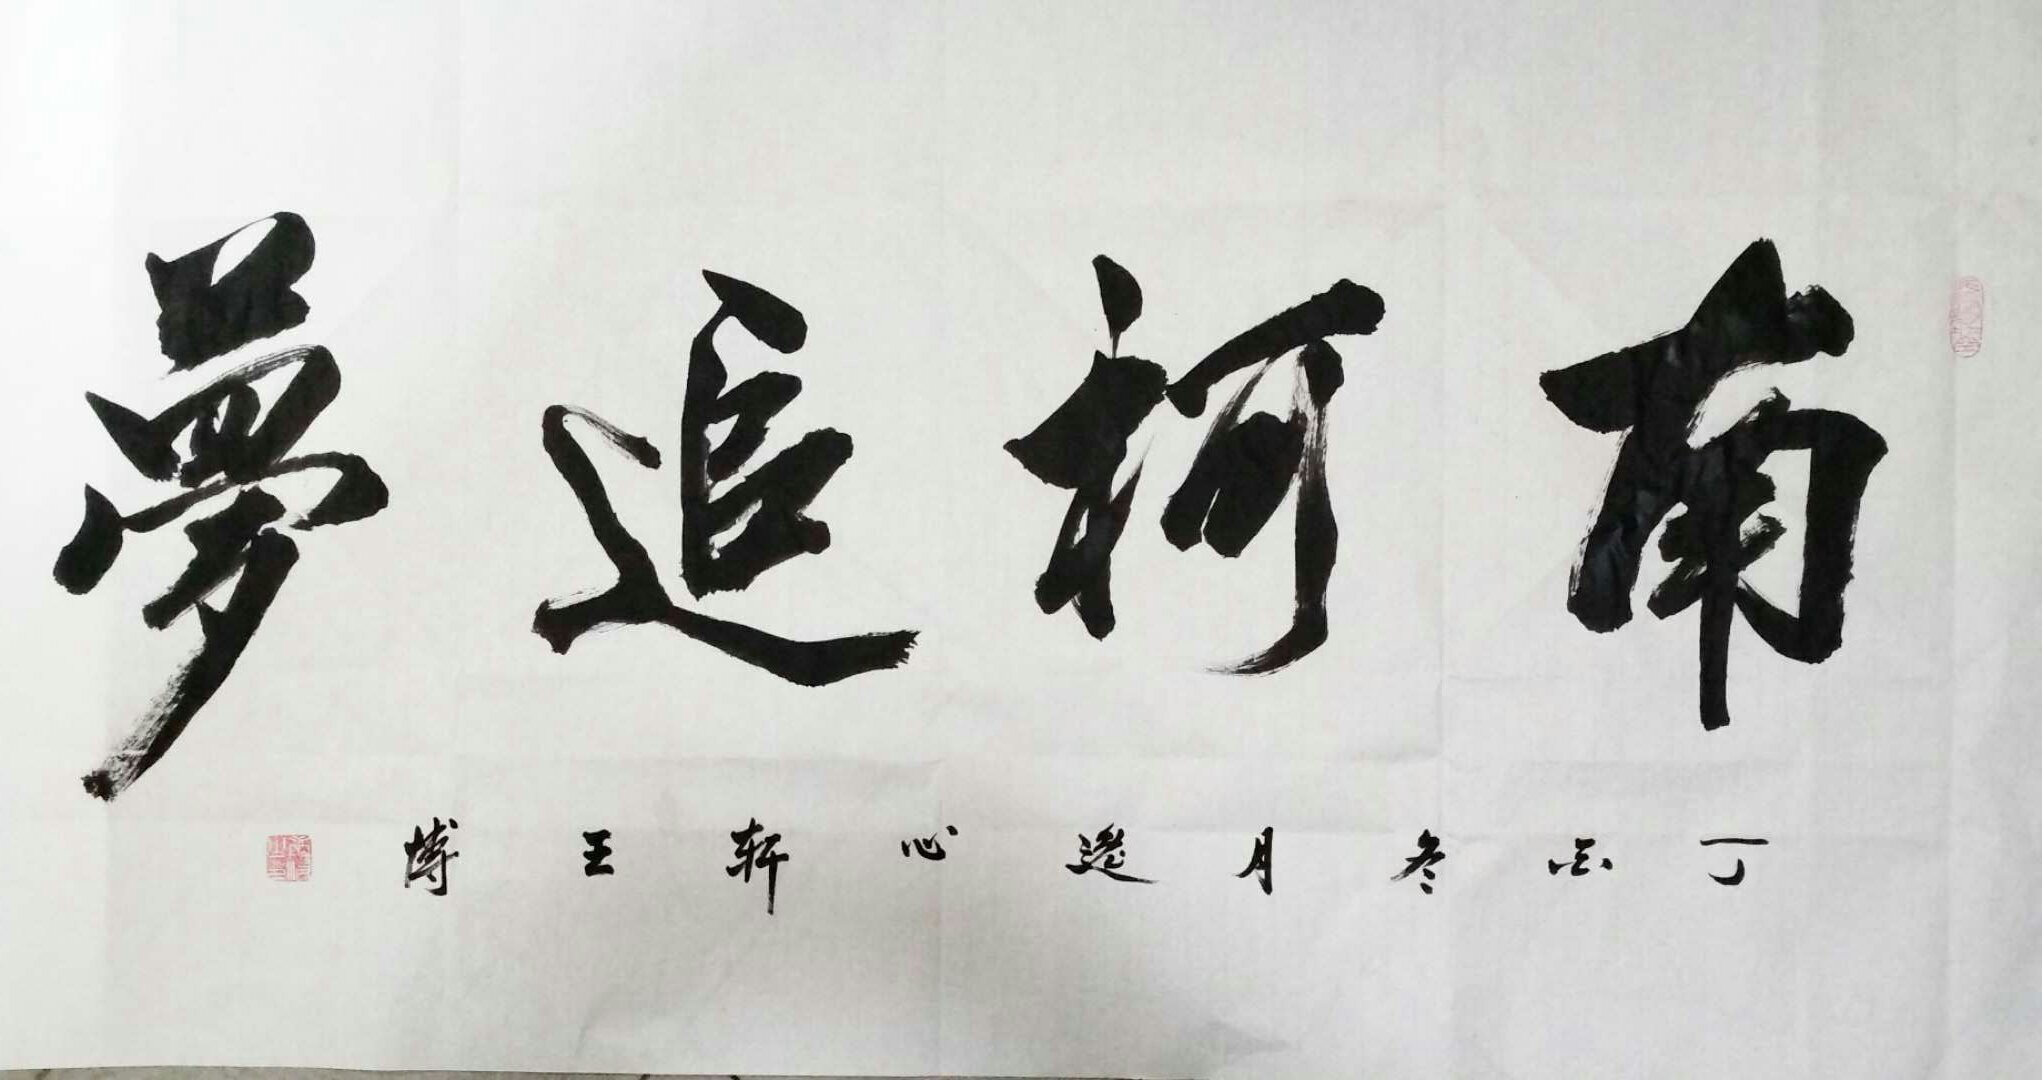 南柯追夢
丁酉冬月逸心軒王博